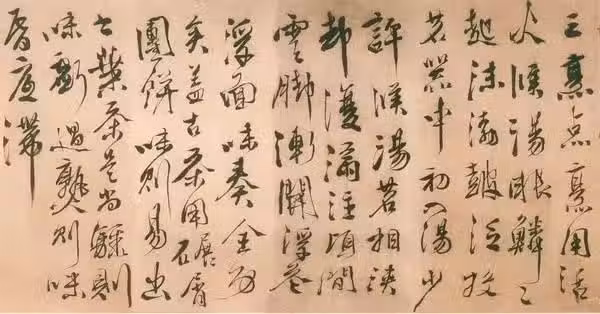 三烹点烹用活
火候湯眼鱗〻
起沫浡皷泛投
茗器中初入湯少
許候湯茗相浹
却復滿注頃間
雲脚漸開浮花
浮面味奏全功
矣盖古茶用碾屑
團餅味則易出
今葉茶是尚驟則
味虧過熟則味
昏底滯